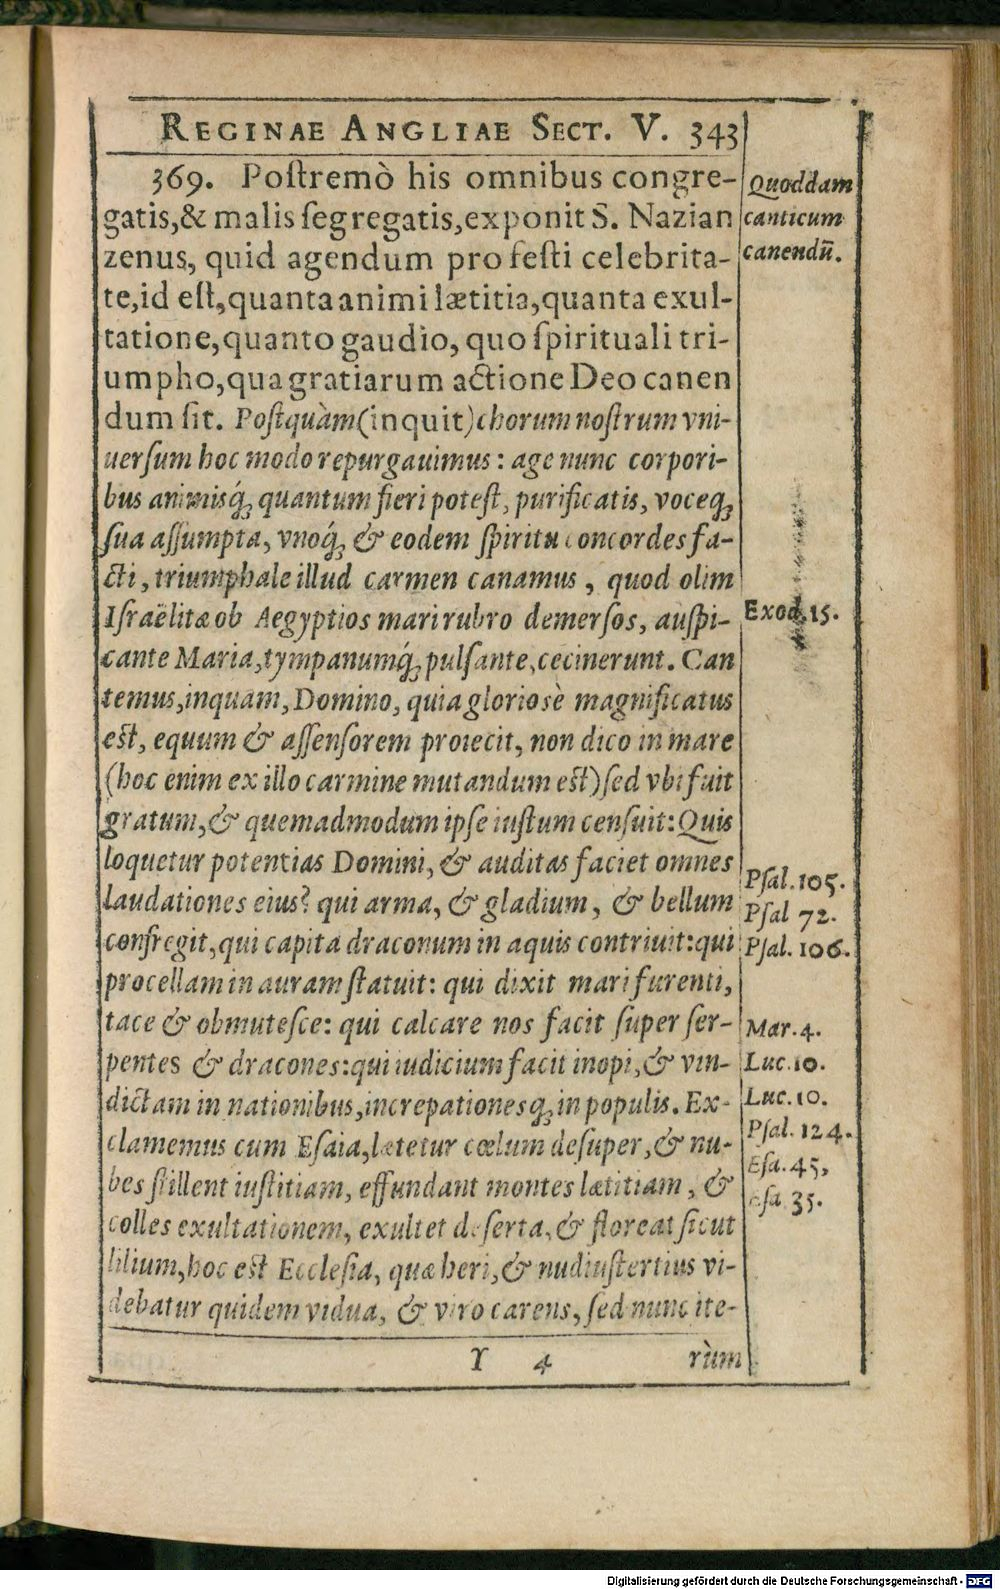 REGINAE ANGLIAE SECT. V. 343
369. Poſtremò his omnibus congre-
gatis,& malis ſegregatis,exponit S. Nazian
zenus, quid agendum pro feſti celebrita-
te,id eſt,quanta animi lætitia,quanta exul-
tatione,quanto gaudio, quo ſpirituali tri-
umpho,qua gratiarum actione Deo canen
dum ſit. Poſtquàm(inquit)chorum noſtrum vni-
uerſum hoc modo repurgauimus: age nunc corpori-
bus animisq́ꝫ quantum fieri poteſt, purificatis, voceqꝫ
ſua aſſumpta, vnoq́ꝫ & eodem ſpiritu concordes fa-
cti, triumphale illud carmen canamus, quod olim
Iſraëlitæ ob Aegyptios mari rubro demerſos, auſpi-
cante Maria,tympanumq́ꝫ pulſante,cecinerunt. Can
temus,inquam, Domino, quia gloriosè magnificatus
eſt, equum & aſſenſorem proiecit, non dico in mare
(hoc enim ex illo carmine mutandum eſt)ſed vbi fuit
gratum,& quemadmodum ipſe iuſtum cenſuit:Quis
loquetur potentias Domini, & auditas faciet omnes
laudationes eius? qui arma, & gladium, & bellum
confregit,qui capita draconum in aquis contriuit:qui
procellam in auram ſtatuit: qui dixit mari furenti,
tace & obmuteſce: qui calcare nos facit ſuper ſer-
pentes & dracones:qui iudicium facit inopi,& vin-
dictam in nationibus,increpationesqꝫ in populis. Ex-
clamemus cum Eſaia,lætetur cœlum deſuper,& nu-
bes ſtillent iuſtitiam, effundant montes lætitiam, &
colles exultationem, exultet deſerta,& floreat ſicut
lilium,hoc eſt Eccleſia, quæ heri,& nudiuſtertius vi-
debatur quidem vidua, & viro carens, ſed nunc ite-
Y 4 rùm
Quoddam
canticum
canendū.
Exod.15.
Pſal.105.
Pſal 72.
Pſal.106.
Mar.4.
Luc.10.
Luc.10.
Pſal.124.
Eſa.45,
Eſa 35.
Digitalisierung gefördert durch die Deutsche Forschungsgemeinschaft - DFG